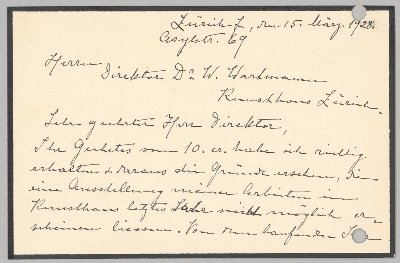 Zürich 7, den 15. März 1928.
Asylstr. 69
Herrn
Direktor Dr. W. Wartmann
Kunsthaus Zürich.
Sehr geehrter Herr Direktor,
Ihr Geehrtes vom 10. cr. habe ich richtig
erhalten & daraus die Gründe ersehen, die
eine Ausstellung meiner Arbeiten im
Kunsthaus letztes Jahr nicht möglich er-
scheinen liessen. Von dem laufenden